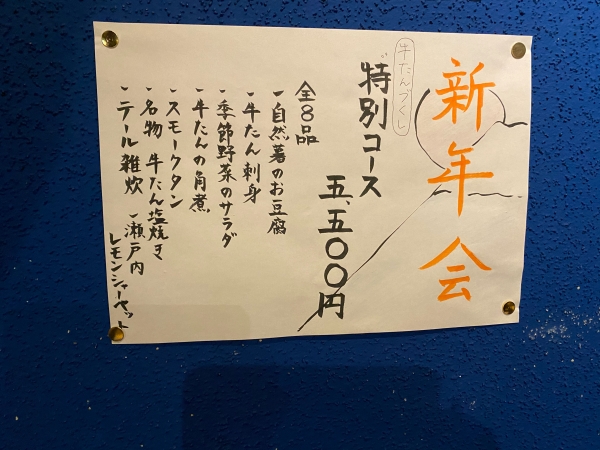 新年会
牛たんづくし
特別コース
五、五〇〇円
全8品
・自然薯のお豆腐
・牛たん刺身
・季節野菜のサラダ
・牛たんの角煮
・スモークタン
・名物 牛たん塩焼き
・テール雑炊
・瀬戸内
レモンシャーベット